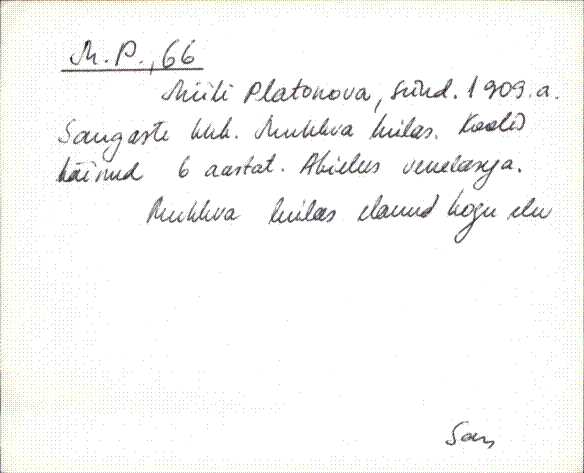 M. P., 66
Miili Platonova, sünd. 1909. a.
Sangaste khk. Mukkva külas. Koolis
käinud 6 aastat. Abielus venelasega.
Mukkva külas elanud kogu elu
San